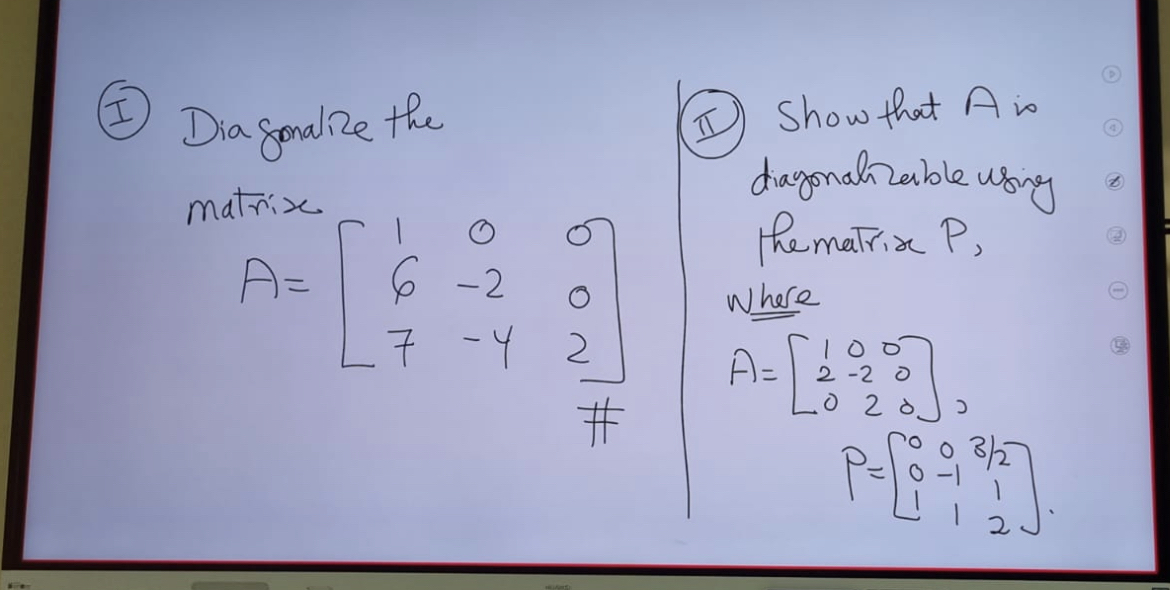 I Diagonalize the
matrix
A= [ 1 0 0
6 -2 0
7 -4 2 ]
#
II Show that A is
diagonalizeable using
the matrix P,
Where
A= [ 1 0 0
2 -2 0
0 2 0 ] ,
P= [ 0 0 3/2
0 -1 1
1 1 2 ] .